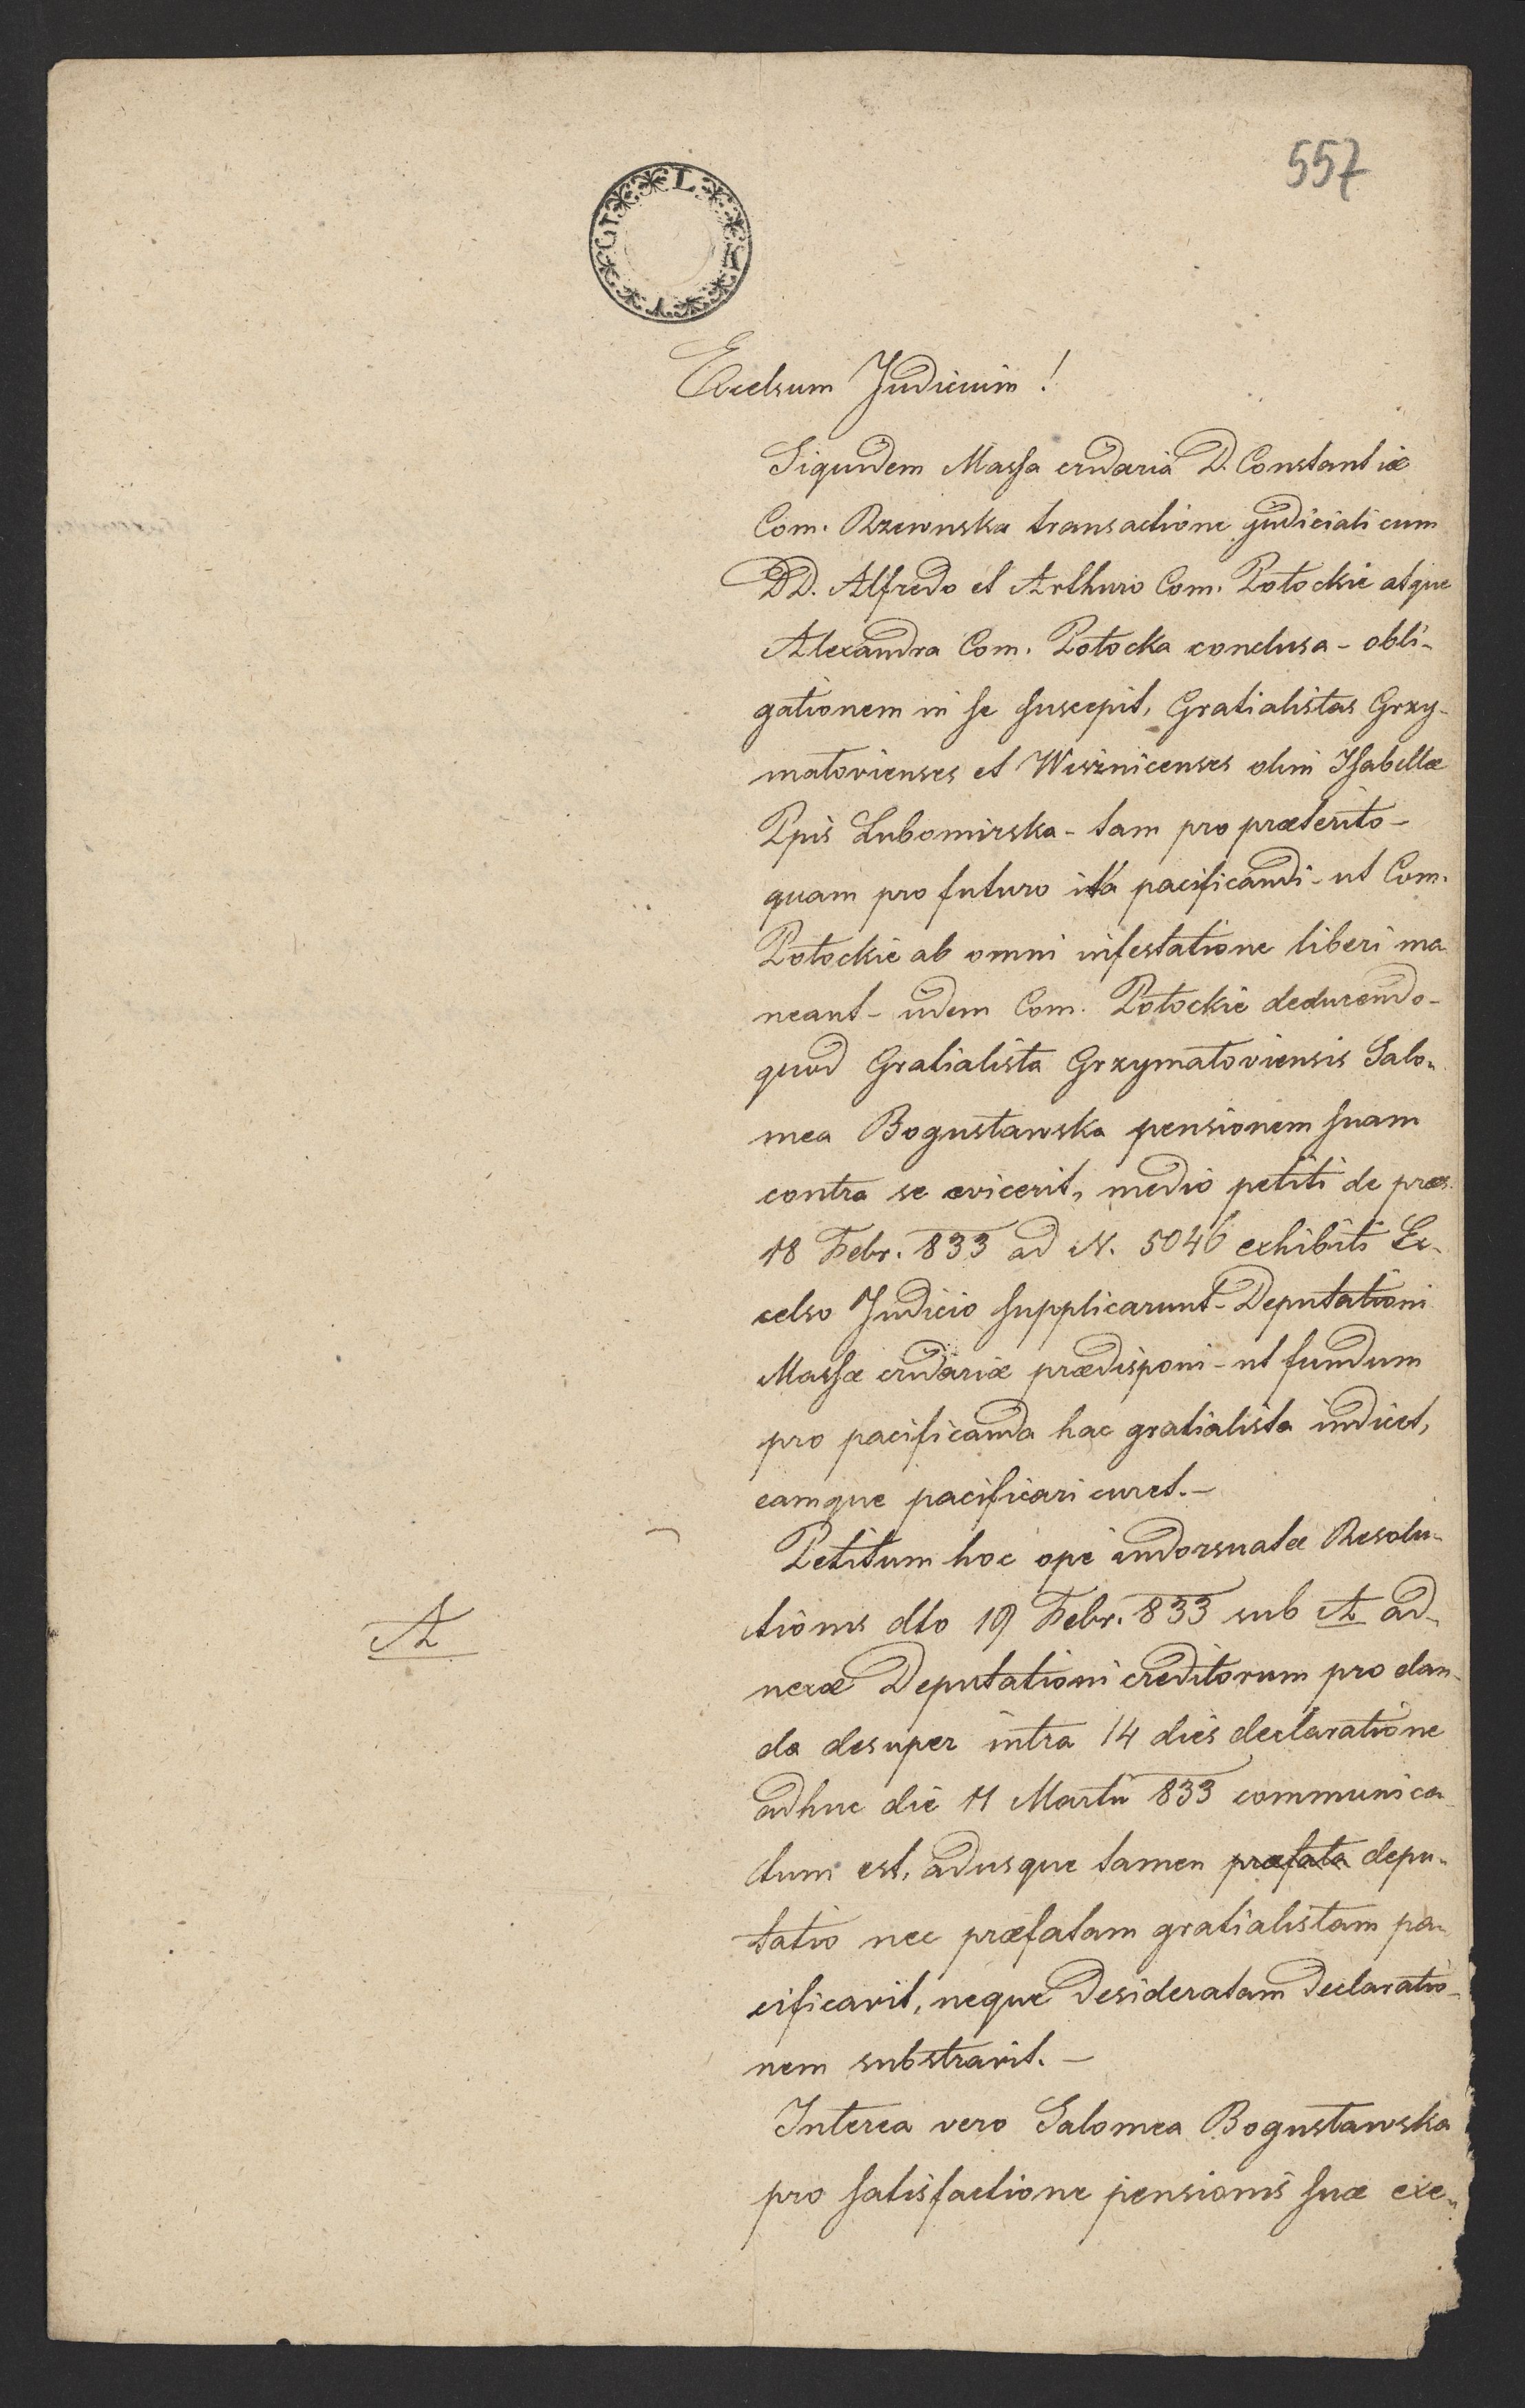 557
Excelsum Judicium!
Siquidem Massa cridaria D. Constantiæ
Com. Rzewuska transactione judiciali cum
DD. Alfredo et Arthuro Com. Potockie atque
Alexandra Com. Potocka conclusa - obli-
gationem in se suscepit, Gratialistas Grzy-
małovienses et Wiśznicenses olim Isabellæ
Ppis Lubomirska - tam pro præterito -
quam pro futuro ita pacificandi - ut Com.
Potockie ab omni infestatione liberi ma
neant - iidem Com. Potockie deducendo -
quod Gratialista Grzymałoviensis Salo-
mea Bogusławska pensionem suam
contra se evicerit, medio petiti de præs.
18 Febr. 833 ad N. 5046 exhibiti Ex-
celso Judicio supplicarunt - Deputationi
Massæ cridariæ prædisponi - ut fundum
pro pacificanda hac gratialista indicet,
eamque pacificari curet. -
Petitum hoc ope indorsuatæ Resolu-
tionis dto 19 Febr. 833 sub A ad-
A
nexæ Deputationi creditorum pro dan-
da desuper intra 14 dies declaratione
adhuc die 11 Martii 833 communica-
tum est, adusque tamen præfata depu-
tatio nec præfatam gratialistam pa-
cificavit, neque desideratam declaratio-
nem substravit. -
Interea vero Salomea Bogusławska
pro satisfactione pensionis suæ exe-